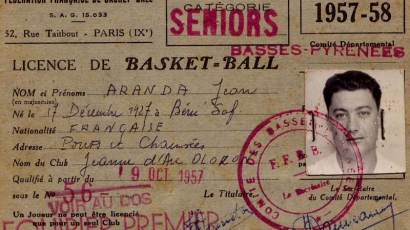 FÉDÉRATION FRANÇAISE DE BASKET-BALL
S. A. G. 15.033
52, Rue Taitbout - PARIS (IXe)
CATÉGORIE
SENIORS
1957-58
Comité Départemental
BASSES-PYRENEES
LICENCE DE BASKET-BALL
NOM et Prénoms ARANDA Jean
(en majuscules)
Né le 17 Décembre 1927 à Béni Saf
Nationalité FRANÇAISE
Adresse Ponts et Chaussées
Nom du Club Jeanne d'Arc OLORON
Qualifié à partir du 9 OCT 1957
sous le No 56
Le Titulaire,
VOIR AU DOS
PREMIER
Un Joueur ne peut être licencié
que pour un seul Club
COMITE DES BASSES
F. F. B. B.
Le Secrétaire
Le Secrétaire
du Comité Départemental,